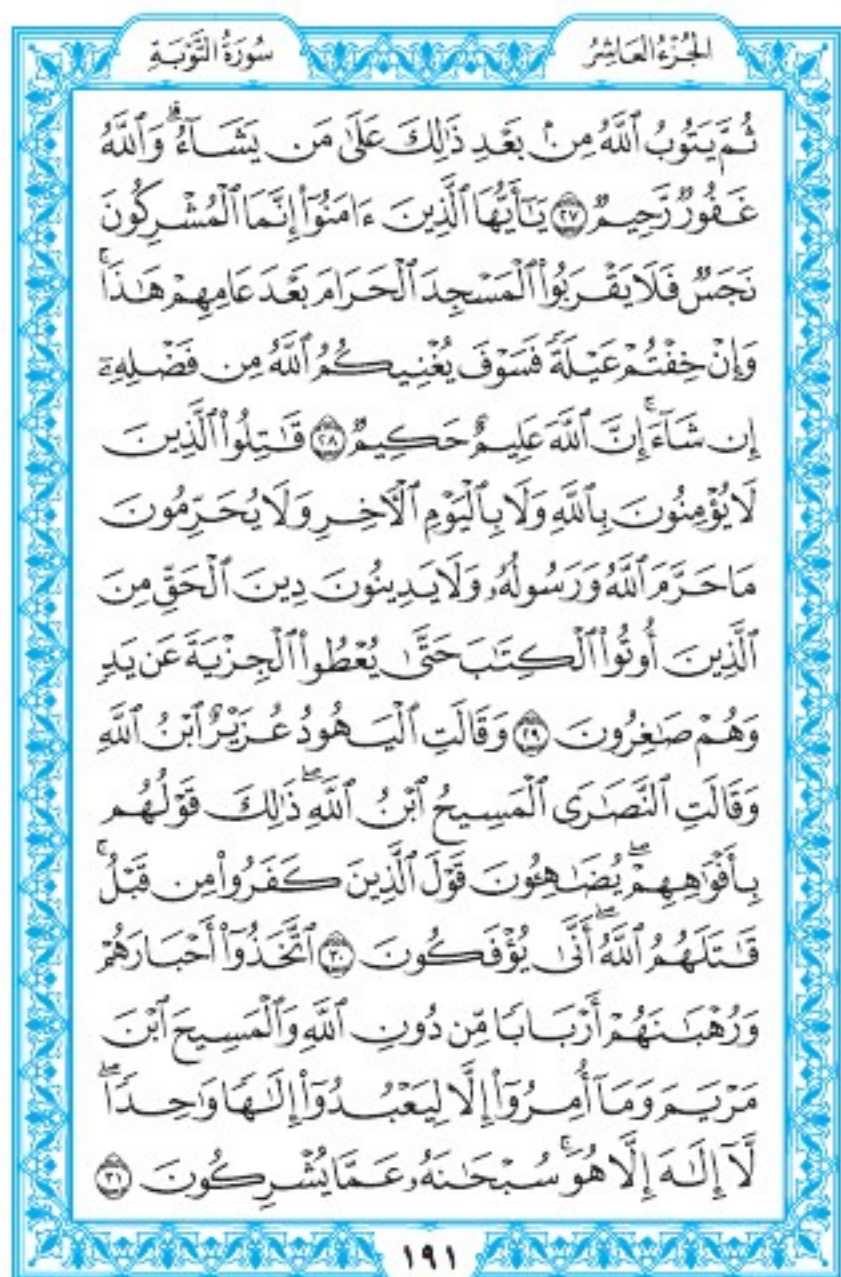 الجُزْءُ العَاشِرُ
سُورَةُ التَّوْبَةِ
ثُمَّ يَتُوبُ ٱللَّهُ مِنۢ بَعْدِ ذَٰلِكَ عَلَىٰ مَن يَشَآءُۗ وَٱللَّهُ
غَفُورٌ رَّحِيمٌ ٢٧ يَٰٓأَيُّهَا ٱلَّذِينَ ءَامَنُوٓاْ إِنَّمَا ٱلْمُشْرِكُونَ
نَجَسٌ فَلَا يَقْرَبُواْ ٱلْمَسْجِدَ ٱلْحَرَامَ بَعْدَ عَامِهِمْ هَٰذَاۚ
وَإِنْ خِفْتُمْ عَيْلَةً فَسَوْفَ يُغْنِيكُمُ ٱللَّهُ مِن فَضْلِهِۦٓ
إِن شَآءَۚ إِنَّ ٱللَّهَ عَلِيمٌ حَكِيمٌ ٢٨ قَٰتِلُواْ ٱلَّذِينَ
لَا يُؤْمِنُونَ بِٱللَّهِ وَلَا بِٱلْيَوْمِ ٱلْأٓخِرِ وَلَا يُحَرِّمُونَ
مَا حَرَّمَ ٱللَّهُ وَرَسُولُهُۥ وَلَا يَدِينُونَ دِينَ ٱلْحَقِّ مِنَ
ٱلَّذِينَ أُوتُواْ ٱلْكِتَٰبَ حَتَّىٰ يُعْطُواْ ٱلْجِزْيَةَ عَن يَدٍ
وَهُمْ صَٰغِرُونَ ٢٩ وَقَالَتِ ٱلْيَهُودُ عُزَيْرٌ ٱبْنُ ٱللَّهِ
وَقَالَتِ ٱلنَّصَٰرَى ٱلْمَسِيحُ ٱبْنُ ٱللَّهِۖ ذَٰلِكَ قَوْلُهُم
بِأَفْوَٰهِهِمْۖ يُضَٰهِـُٔونَ قَوْلَ ٱلَّذِينَ كَفَرُواْ مِن قَبْلُۚ
قَٰتَلَهُمُ ٱللَّهُۖ أَنَّىٰ يُؤْفَكُونَ ٣٠ ٱتَّخَذُوٓاْ أَحْبَارَهُمْ
وَرُهْبَٰنَهُمْ أَرْبَابًا مِّن دُونِ ٱللَّهِ وَٱلْمَسِيحَ ٱبْنَ
مَرْيَمَ وَمَآ أُمِرُوٓاْ إِلَّا لِيَعْبُدُوٓاْ إِلَٰهًا وَٰحِدًاۖ
لَّآ إِلَٰهَ إِلَّا هُوَۚ سُبْحَٰنَهُۥ عَمَّا يُشْرِكُونَ ٣١
١٩١